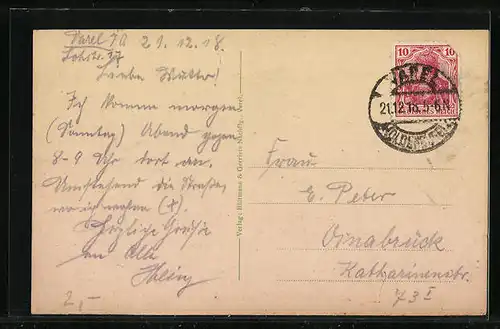 Varel i/O 21.12.18.
Lohstr. 37
Liebe Mutter!
Ich komme morgen
(Sonntag) Abend gegen
8-9 Uhr dort an.
Umstehend die Straße,
wo ich wohne (X)
Herzliche Grüße
an Alle
2,-
Verlag: Bültmann & Gerriets Nachflg., Varel.
10 10
VAREL
21.12.18. 5-6N
(OLDENBURG)
Frau
E. Peter
Osnabrück
Katharinenstr.
73 I